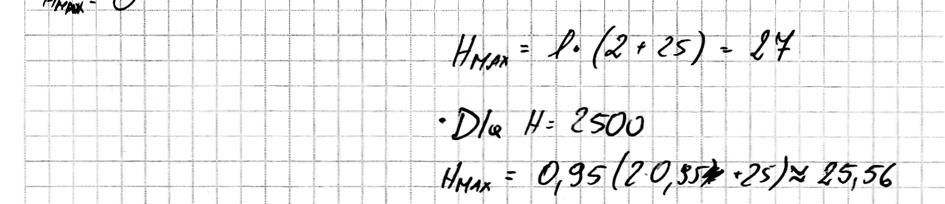 H_MAX =
H_MAX = 1 · (2 + 25) = 27
· Dla H = 2500
H_MAX = 0,95 (2·0,95 + 25) ≈ 25,56